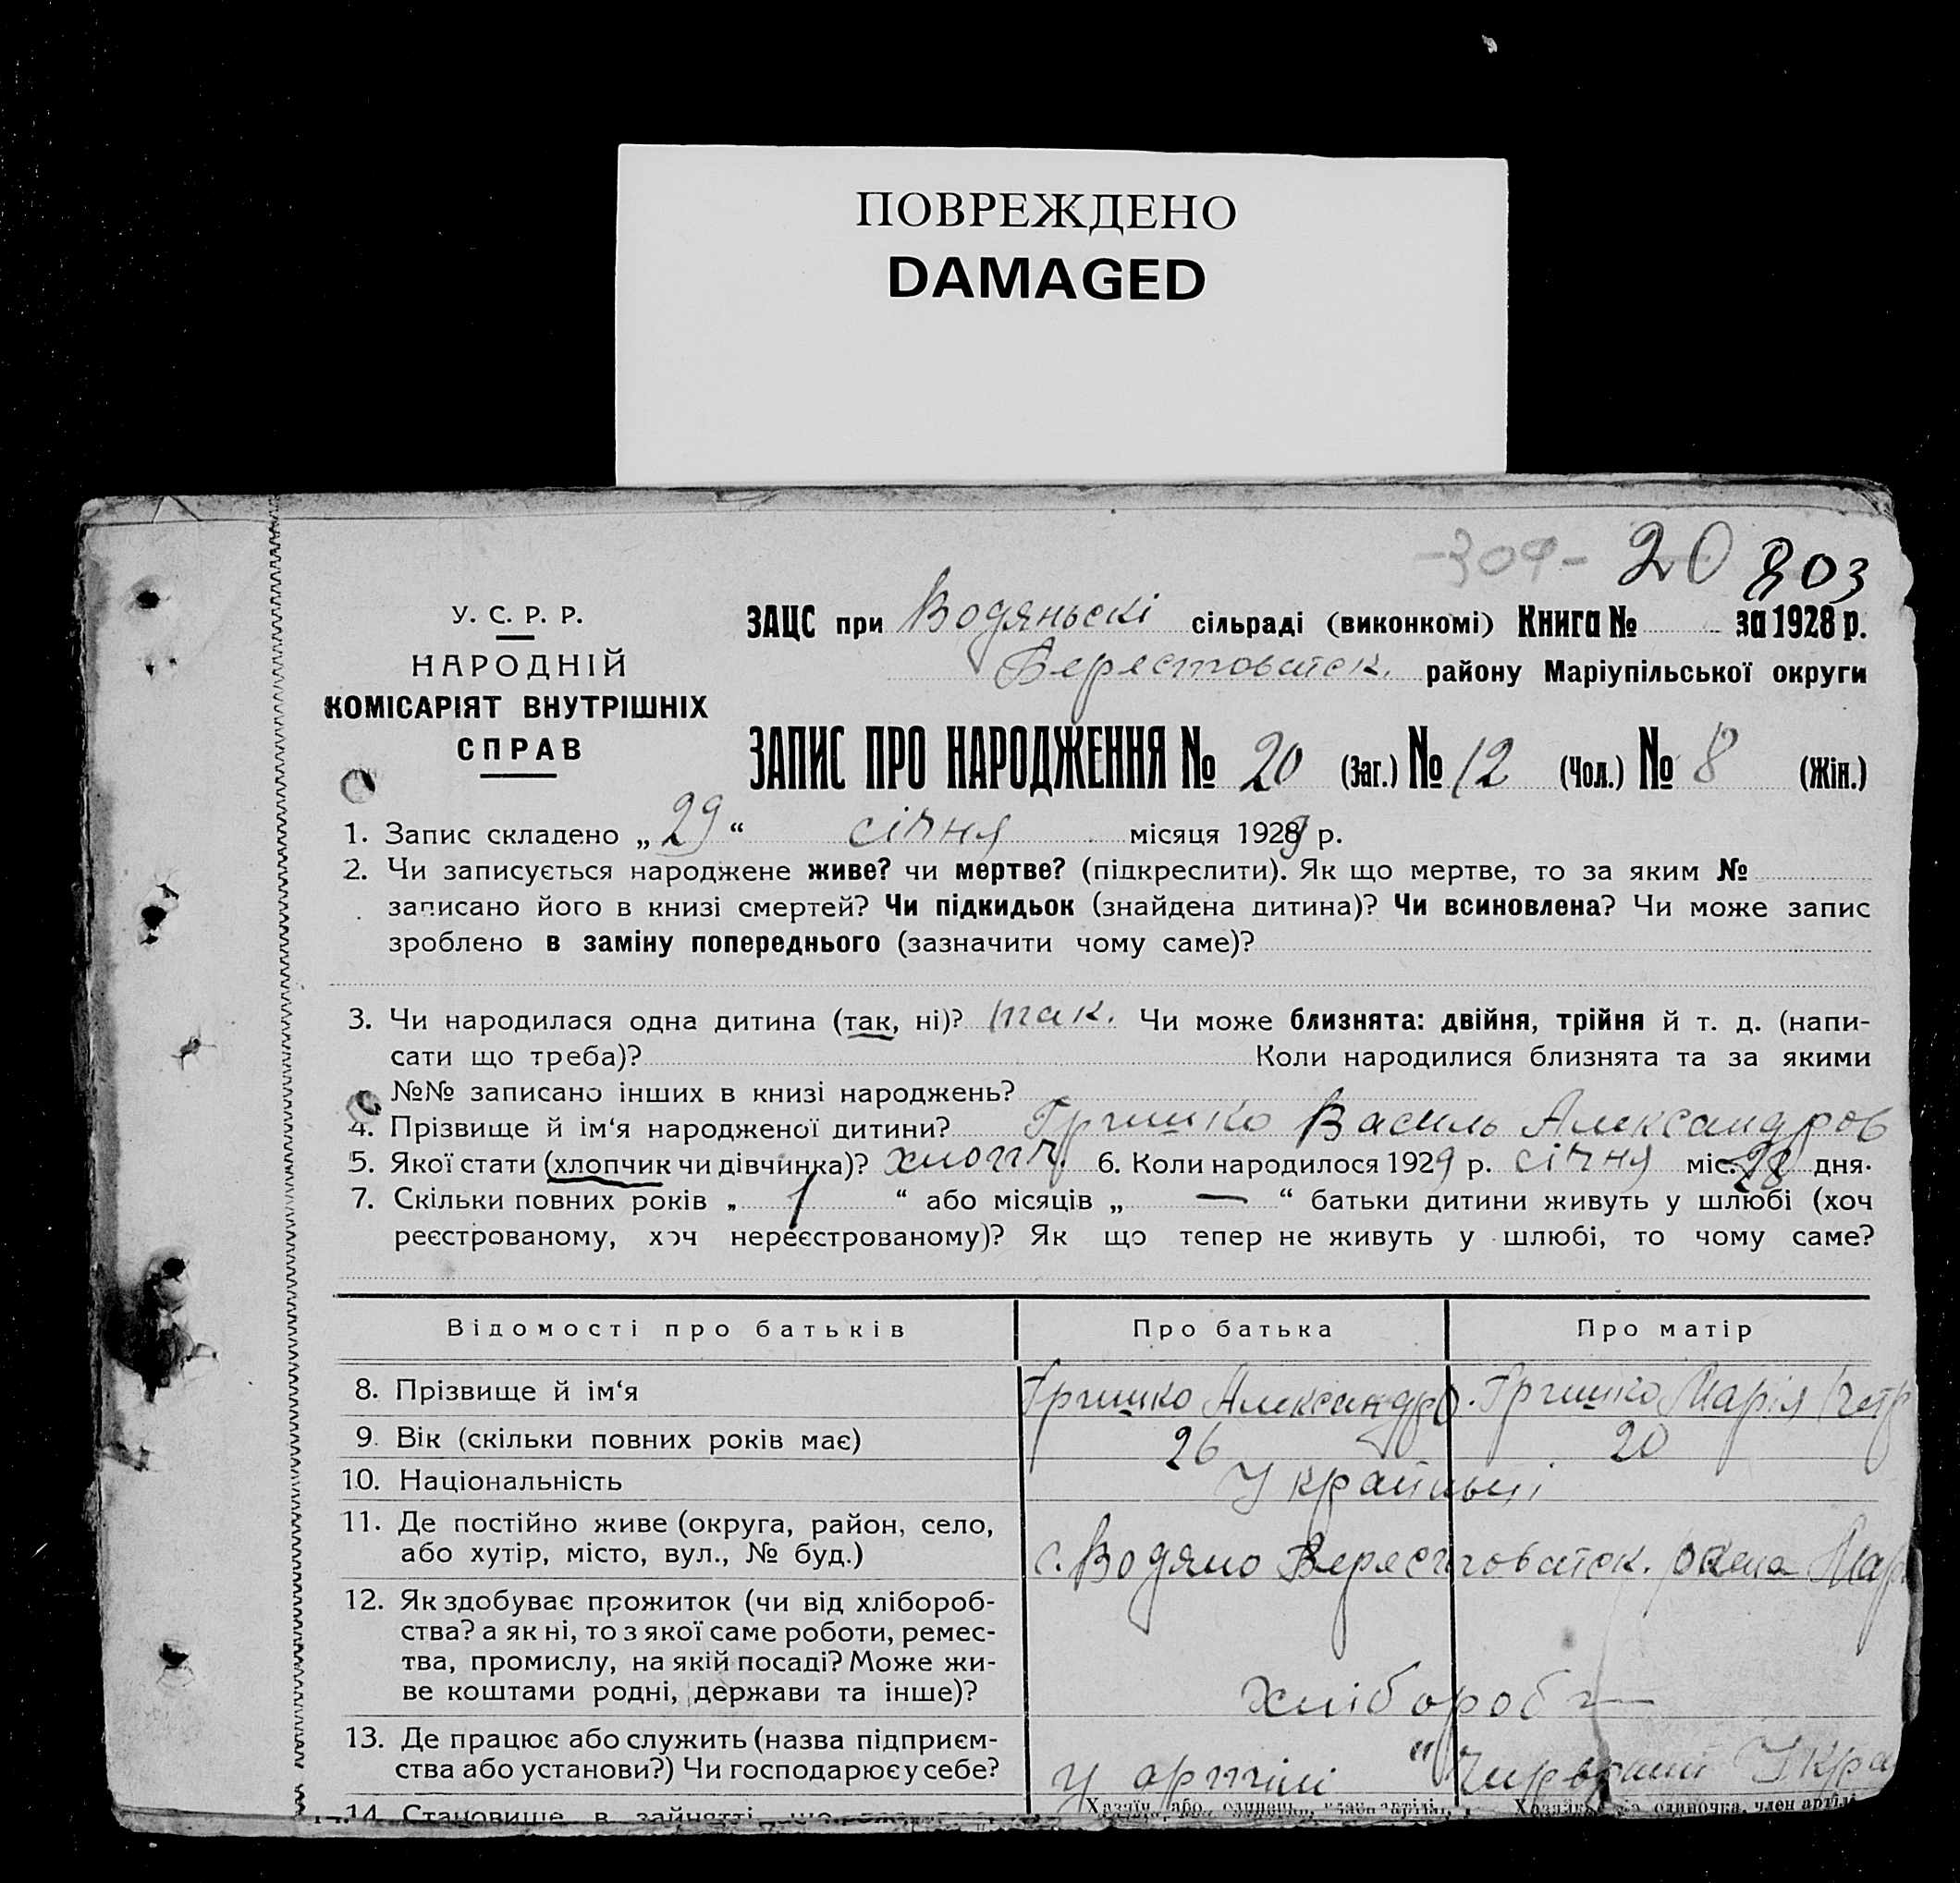 ПОВРЕЖДЕНО
DAMAGED
-309- 20 303
У. С. Р. Р.
НАРОДНІЙ
КОМІСАРІЯТ ВНУТРІШНІХ
СПРАВ
ЗАЦС при Водяньскі сільраді (виконкомі) Книга № за 1928 р.
Берестоватск. району Маріупільської округи
ЗАПИС ПРО НАРОДЖЕННЯ № 20 (Заг.) № 12 (Чол.) № 8 (Жін.)
1. Запис складено „ 29 “ січня місяця 1929 р.
2. Чи записується народжене живе? чи мертве? (підкреслити). Як що мертве, то за яким №
записано його в книзі смертей? Чи підкидьок (знайдена дитина)? Чи всиновлена? Чи може запис
зроблено в заміну попереднього (зазначити чому саме)?
3. Чи народилася одна дитина (так, ні)? так. Чи може близнята: двійня, трійня й т. д. (напи-
сати що треба)? Коли народилися близнята та за якими
№№ записано інших в книзі народжень?
4. Прізвище й ім‘я народженої дитини? Гришко Василь Александров
5. Якої стати (хлопчик чи дівчинка)? хлопч. 6. Коли народилося 1929 р. січня міс. 28 дня.
7. Скільки повних років „ 1 “ або місяців „ — “ батьки дитини живуть у шлюбі (хоч
реєстрованому, хоч нереєстрованому)? Як що тепер не живуть у шлюбі, то чому саме?
Відомості про батьків Про батька Про матір
8. Прізвище й ім‘я Гришко Александр Гришко Марія Петр
9. Вік (скільки повних років має) 26 20
10. Національність Українці
11. Де постійно живе (округа, район, село,
або хутір, місто, вул., № буд.) с. Водяно Берестоватск. района Мар
12. Як здобуває прожиток (чи від хлібороб-
ства? а як ні, то з якої саме роботи, ремес-
тва, промислу, на якій посаді? Може жи-
ве коштами родні, держави та інше)? хлібороб
13. Де працює або служить (назва підприєм-
ства або установи?) Чи господарює у себе? у артілі "Червоний Укра
14. Становище в занятті
Хазяїн або одиночка, член артілі, Хазяйка одиночка, член артілі